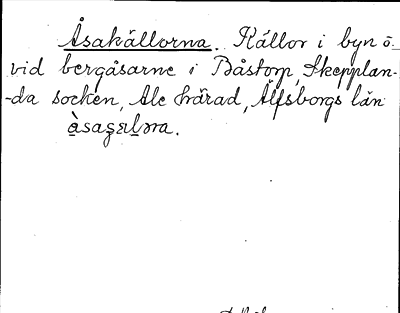 Åsakällorna. Källor i byn o.
vid bergåsarne i Båstorp, Skepplan-
-da socken, Ale härad, Älfsborgs län